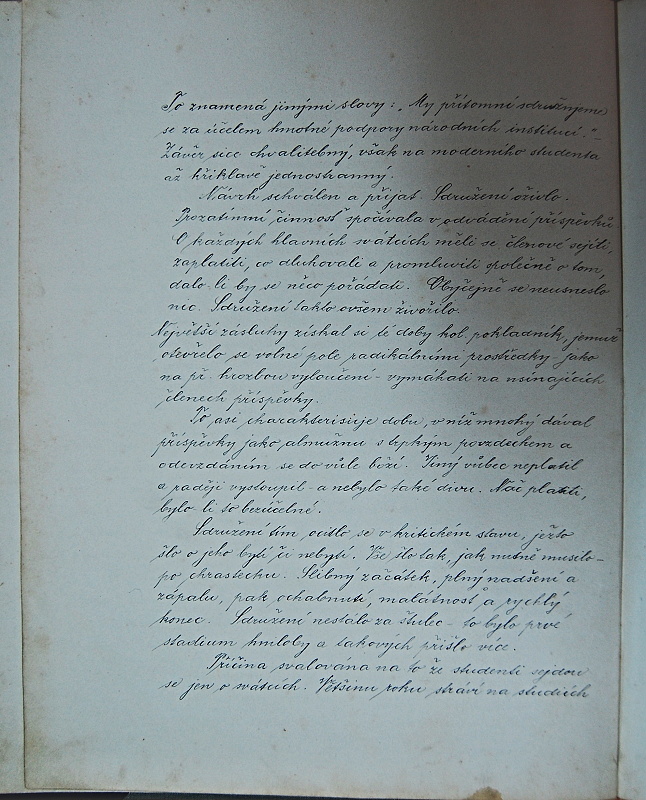 To znamená jinými slovy: „My přítomní sdružujem
se za účelem hmotné podpory národních institucí.“ –
Závěr sice chvalitebný, však na moderního studenta
až křiklavě jednostranný.
Návrh schválen a přijat. Sdružení ožívlo.
Prozatímní činnosť spočívala v odvádění příspěvků
O každých hlavních svátcích měli se členové sejíti,
zaplatiti, co dluhovali a promluviti společně o tom,
dalo-li by se něco pořádati. Obyčejně se neusneslo
nic. Sdružení takto ovšem živořilo.
Největší zásluhy získal si té doby kol. pokladník, jemuž
otevřelo se volné pole radikálními prostředky – jako
na př. hrozbou vyloučení – vymáhati na usínajících
členech příspěvky.
To asi charakterisuje dobu, v níž mnohý dával
příspěvky jako almužnu s trpkým povzdechem a
odevzdáním se do vůle boží. Jiný vůbec neplatil
a raději vystoupil – a nebylo také divu. Nač platit,
bylo-li to bezúčelné.
Sdružení tím ocitlo se v kritickém stavu, ježto
šlo o jeho bytí či nebytí. Vše šlo tak, jak nutně muselo –
po chrastechu. Slibný začátek, plný nadšení a
zápalu, pak ochabnutí, malátnosť a rychlý
konec. Sdružení nestálo za štulec – to bylo prvé
stadium hniloby a takových přišlo více.
Příčina svalována na to že studenti sejdou
se jen o svátcích. Většinu roku stráví na studiích